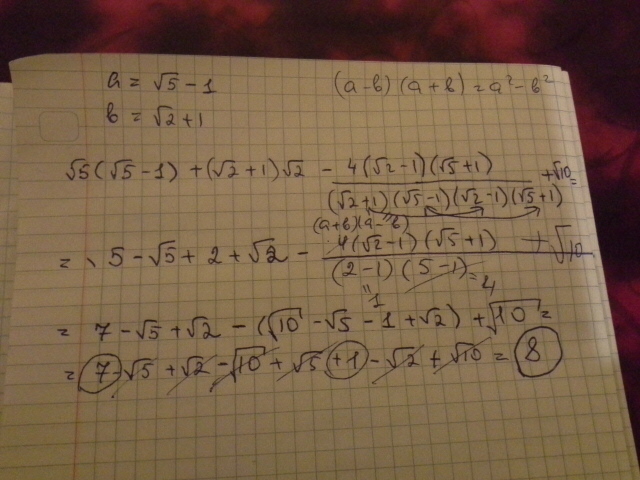 a = √5 - 1 (a-b)(a+b) = a² - b²
b = √2 + 1
√5(√5-1) + (√2+1)√2 - 4(√2-1)(√5+1) / (√2+1)(√5-1)(√2-1)(√5+1) + √10 =
(a+b)(a-b)
= 5 - √5 + 2 + √2 - 4(√2-1)(√5+1) / (2-1)(5-1) + √10
"1 = 4
= 7 - √5 + √2 - (√10 - √5 - 1 + √2) + √10 =
= 7 - √5 + √2 - √10 + √5 + 1 - √2 + √10 = 8